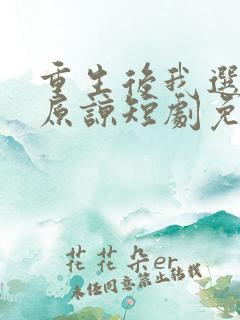 重生後我選
原諒短劇免
花花朵er
未经同意禁止转载